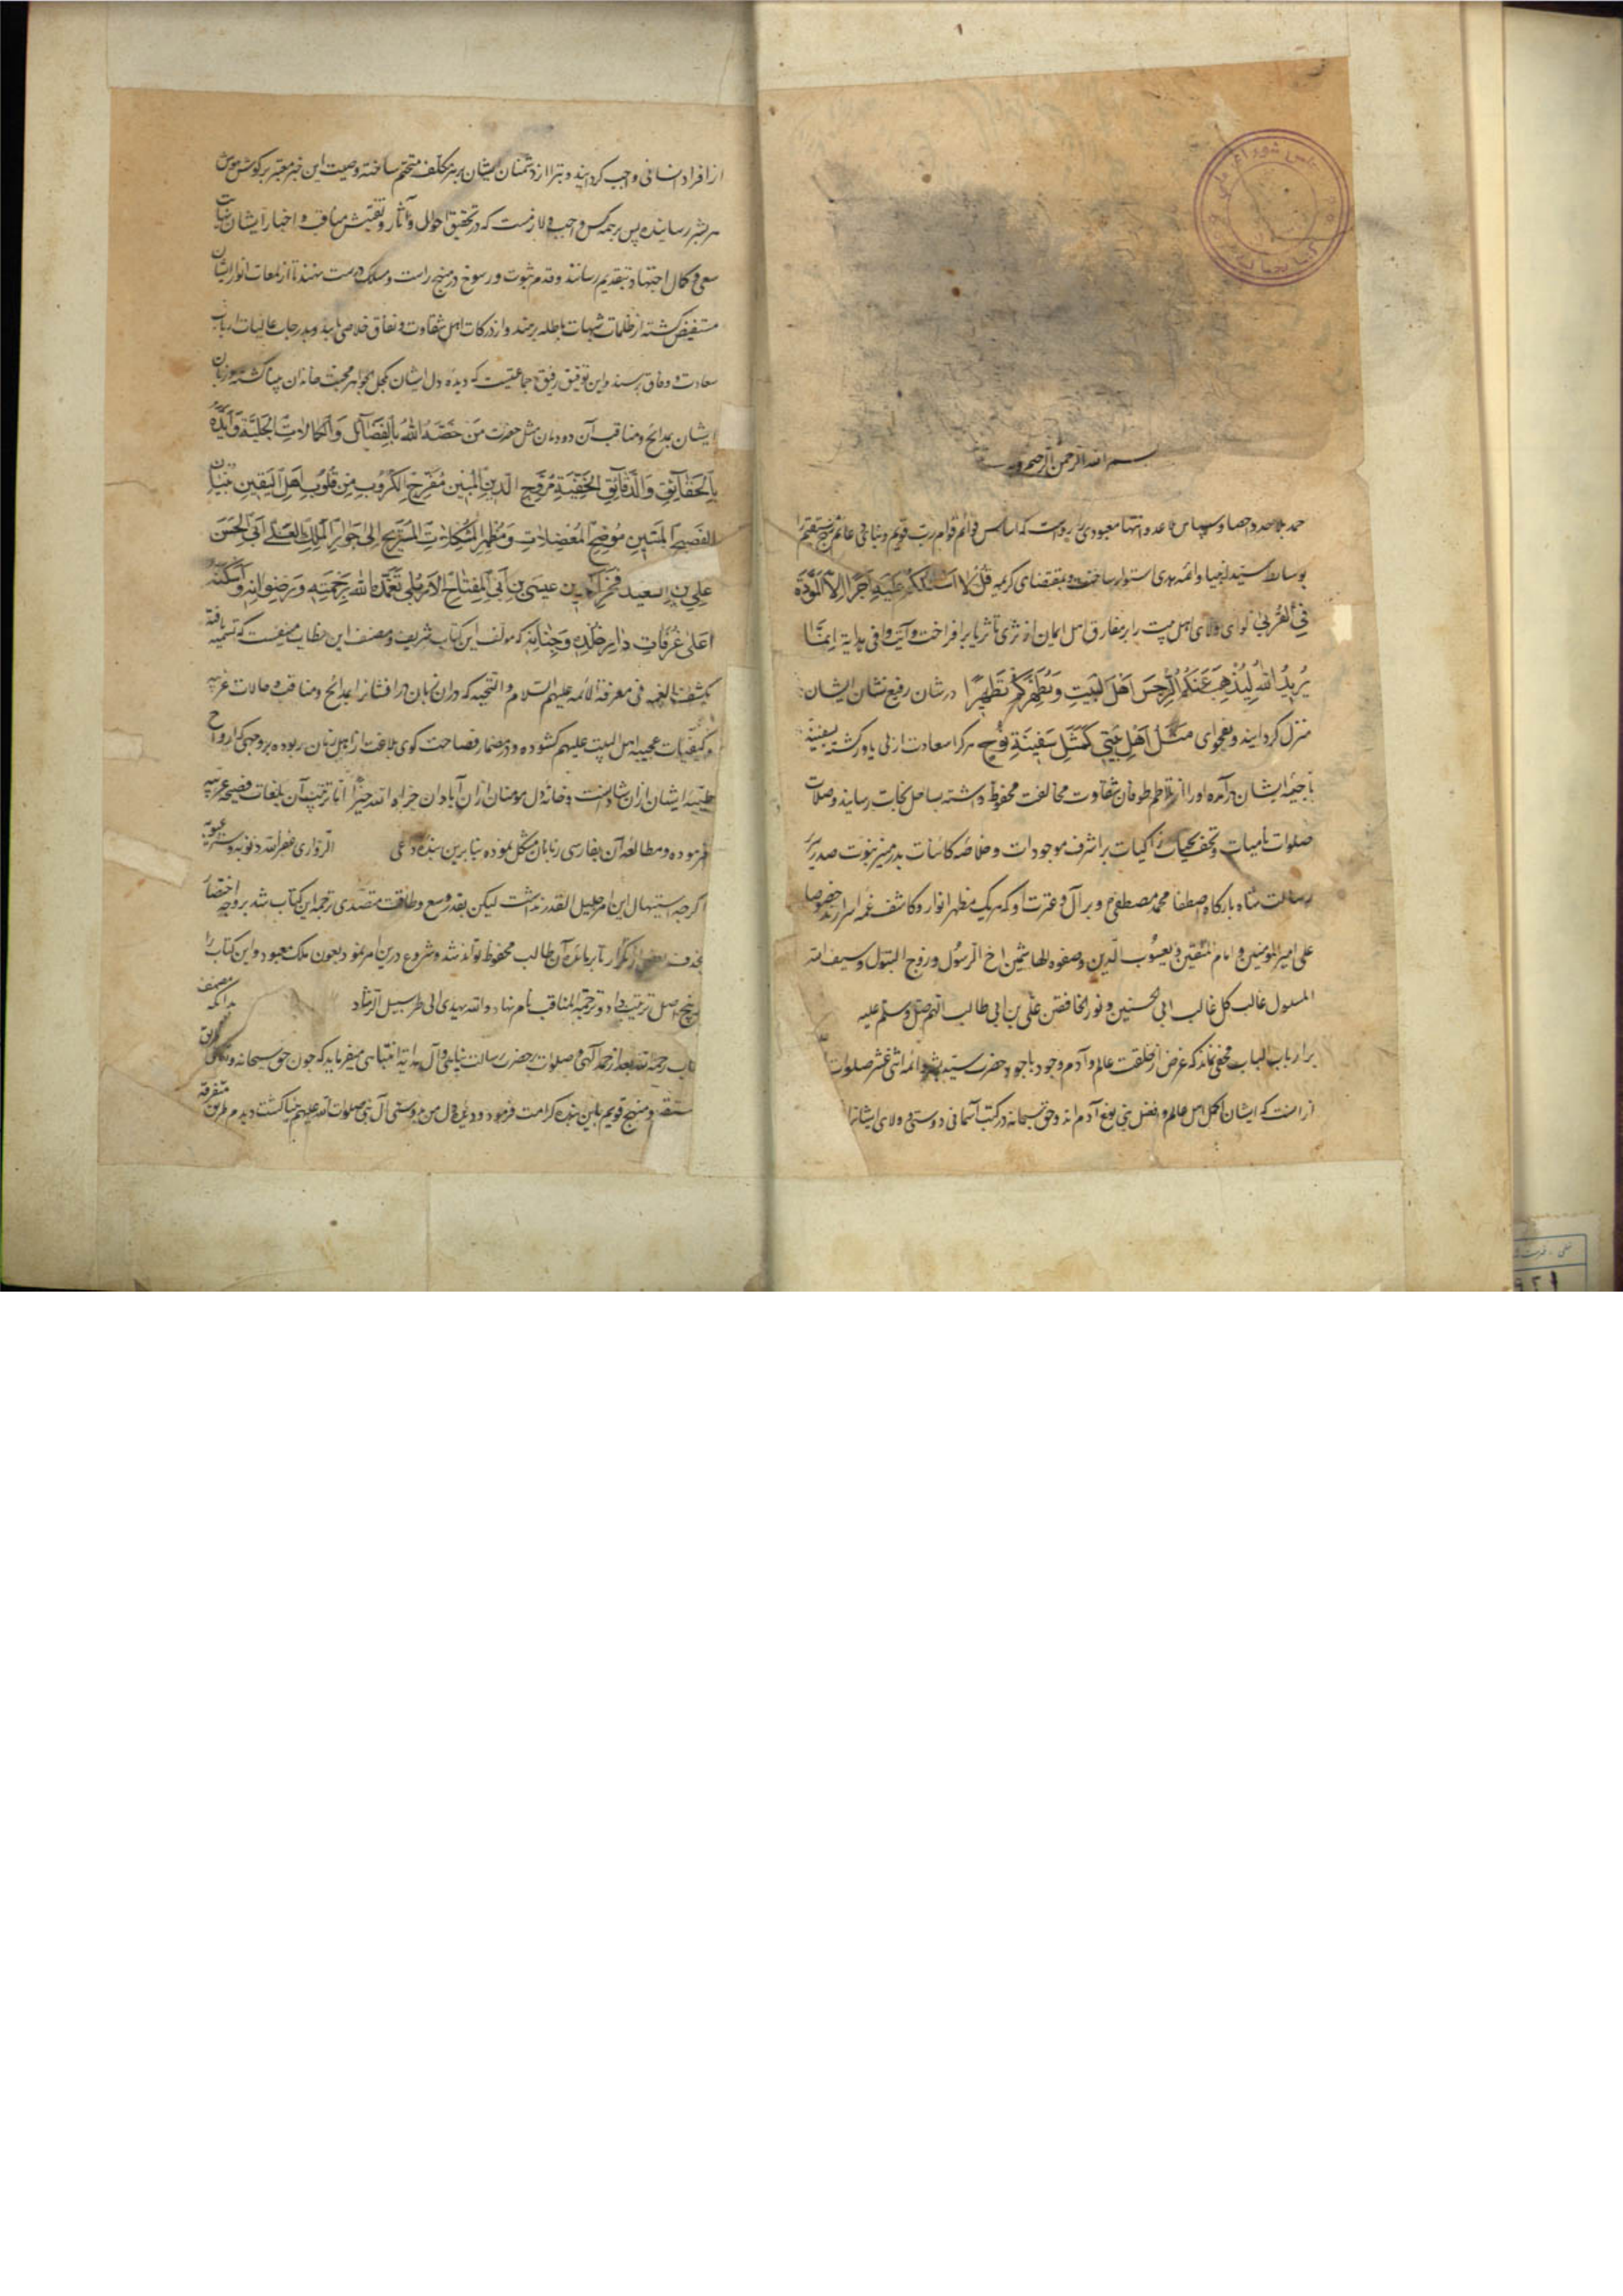 بسم الله الرحمن الرحیم
حمد بلا حد و احصا و سپاس بلا عد و انتها معبودی را رواست که اساس قوائم قوام دین قویم و مبانی دعائم نهج مستقیم را
بوسایط سید انبیا و ائمه هدی استوار ساخت و بمقتضای کریمه قُلْ لا اَسْئَلُکُمْ عَلَیْهِ اَجْرًا اِلَّا الْمَوَدَّةَ
فِی الْقُرْبی لوای ولای اهل بیت را بر مفارق اهل ایمان از ثری تا ثریا بر افراخت و آیت وافی هدایة اِنَّمَا
یُرِیدُ اللهُ لِیُذْهِبَ عَنْکُمُ الرِّجْسَ اَهْلَ الْبَیْتِ وَ یُطَهِّرَکُمْ تَطْهِیرًا در شان رفیع نشان ایشان
منزل کردانید و بفحوای مَثَلُ اَهْلِ بَیْتِی کَمَثَلِ سَفِینَةِ نُوحٍ هر کرا سعادت ازلی یاور کشته بسفینهٔ
ناجیهٔ ایشان در آمده او را از تلاطم طوفان شقاوت مخالفت محفوظ داشته بساحل نجات رسانید و صلات
صلوات نامیات و تحف تحیات زاکیات بر اشرف موجودات و خلاصه کائنات بدر منیر نبوت صدر سریر
رسالت شاه بارکاه اصطفا محمد مصطفی و بر آل و عترت او که هریک مظهر انوار و کاشف غمه اسرارند خصوصا
علی امیر المؤمنین و امام المتقین و یعسوب الدین و صفوه الهاشمین اخ الرسول و زوج البتول و سیف الله
المسلول غالب کل غالب ابی الحسنین و نور الخافقین علی بن ابی طالب اللهم صل و سلم علیه
بر ارباب الباب مخفی نماند که غرض از خلقت عالم و آدم وجود باجود حضرت سید بشر و ائمه اثنی عشر صلوات
از آنست که ایشان اکمل اهل عالم و افضل بنی نوع آدم اند و حق سبحانه در کتب آسمانی دوستی و ولای ایشانرا
از افراد انسانی واجب کردانیده و تبرا از دشمنان ایشان بر هر مکلف متحتم ساخته وصیت این خبر معتبر بر کوش هوش
هر بشر رسانیده پس بر همه کس واجب و لازمست که در تحقیق احوال و آثار و تفتیش مناقب و اخبار ایشان غایت
سعی و کمال اجتهاد بتقدیم رسانند و قدم ثبوت و رسوخ در منهج راست و مسلک درست نهند تا از لمعات انوار ایشان
مستفیض کشته از ظلمات شبهات باطله برهند و از درکات اهل شقاوت و نفاق خلاصی یابند و بدرجات عالیات ارباب
سعادت و وفاق برسند و این توفیق رفیق جماعتیست که دیده دل ایشان بکحل الجواهر محبت خاندان بینا کشته و زبان
ایشان بمدائح و مناقب آن دودمان مثل حضرت مَنْ خَصَّهُ اللهُ بِالْفَضَائِلِ وَ الْکَمَالاتِ الْجَلِیَّةِ وَ اَیَّدَهُ
بِالْحَقَائِقِ وَ الدَّقَائِقِ الْخَفِیَّةِ مُرَوِّجِ الدِّینِ الْمُبِینِ مُفَرِّجِ الْکُرُوبِ مِنْ قُلُوبِ اَهْلِ الْیَقِینِ
الْفَصِیحِ الْمَتِینِ مُوضِحِ الْمُعْضِلاتِ وَ مُظْهِرِ الْمُشْکِلاتِ الْمُسْتَرِیحِ اِلی جِوَارِ الْمَلِکِ الْعَلِیِّ اَبِی الْحَسَنِ
عَلِیِّ بْنِ السعید فخر الدین عِیسَی بْنِ اَبِی الْفَتْحِ الْاَرْبِلِی تَغَمَّدَهُ اللهُ بِرَحْمَتِهِ وَ رِضْوَانِهِ وَ اَسْکَنَهُ
اَعْلی غُرُفَاتِ دَارِ خُلْدِهِ وَ جِنَانِهِ که مولف این کتاب شریف و مصنف این خطاب منیفست که تسمیه یافته
بکشف الغمه فی معرفة الائمه علیهم السلام و التحیه که در آن زبان در افشانرا بمدائح و مناقب و حالات غریبه
و کیفیات عجیبه اهل البیت علیهم کشوده و در مضمار فصاحت کوی بلاغت از اهل زمان ربوده بر وجهی که ارواح
طیبه ایشان ازان شادانست و خانه دل مومنان ازان آبادان جزاه الله خیرا اما ترتیب آن بلغات فصیحه عربیه
فرموده و مطالعه آن بفارسی زبانان مشکل نموده بنابرین بنده داعی الزواری غفر الله ذنوبه و ستر عیوبه
اکرچه استیهال این امر جلیل القدر نداشت لیکن بقدر وسع و طاقت متصدی ترجمه این کتاب شد بر وجه اختصار
بحذف بعضی از تکرار تا بر یاد آن طالب محفوظ تواند شد و شروع درین امر نمود بعون ملک معبود و این کتاب را
بنهج اصل ترتیب داد و ترجمة المناقب نام نهاد و الله یهدی الی طریق سبیل الرشاد بدانکه مصنف
کتاب رحمه الله بعد از حمد آلهی و صلوات بر حضرت رسالت پناهی و آل هدایة انتباهی میفرماید که چون حق سبحانه و تعالی طریق
مستقیم و منهج قویم باین بنده کرامت فرمود و دیدن دل من بدوستی آل نبی صلوات الله علیهم بینا کشت دیدم طرق متفرقه